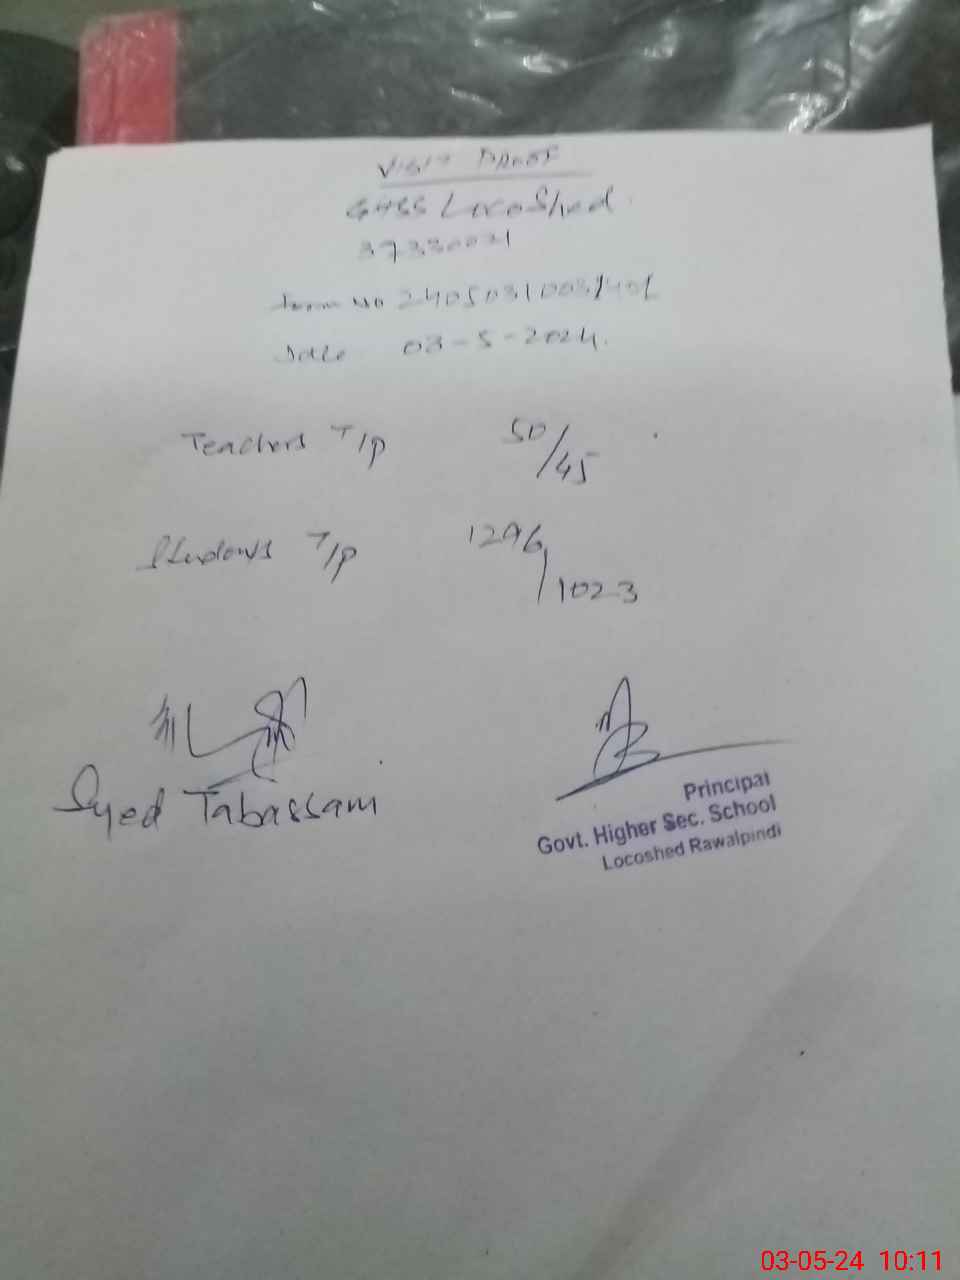 VISIT PROOF
GHSS LocoShed
37330021
Form No
Date 03-5-2024.
Teachers T/P 50/45
Students T/P 1296/1023
Syed Tabassam
Principal
Govt. Higher Sec. School
Locoshed Rawalpindi
03-05-24 10:11